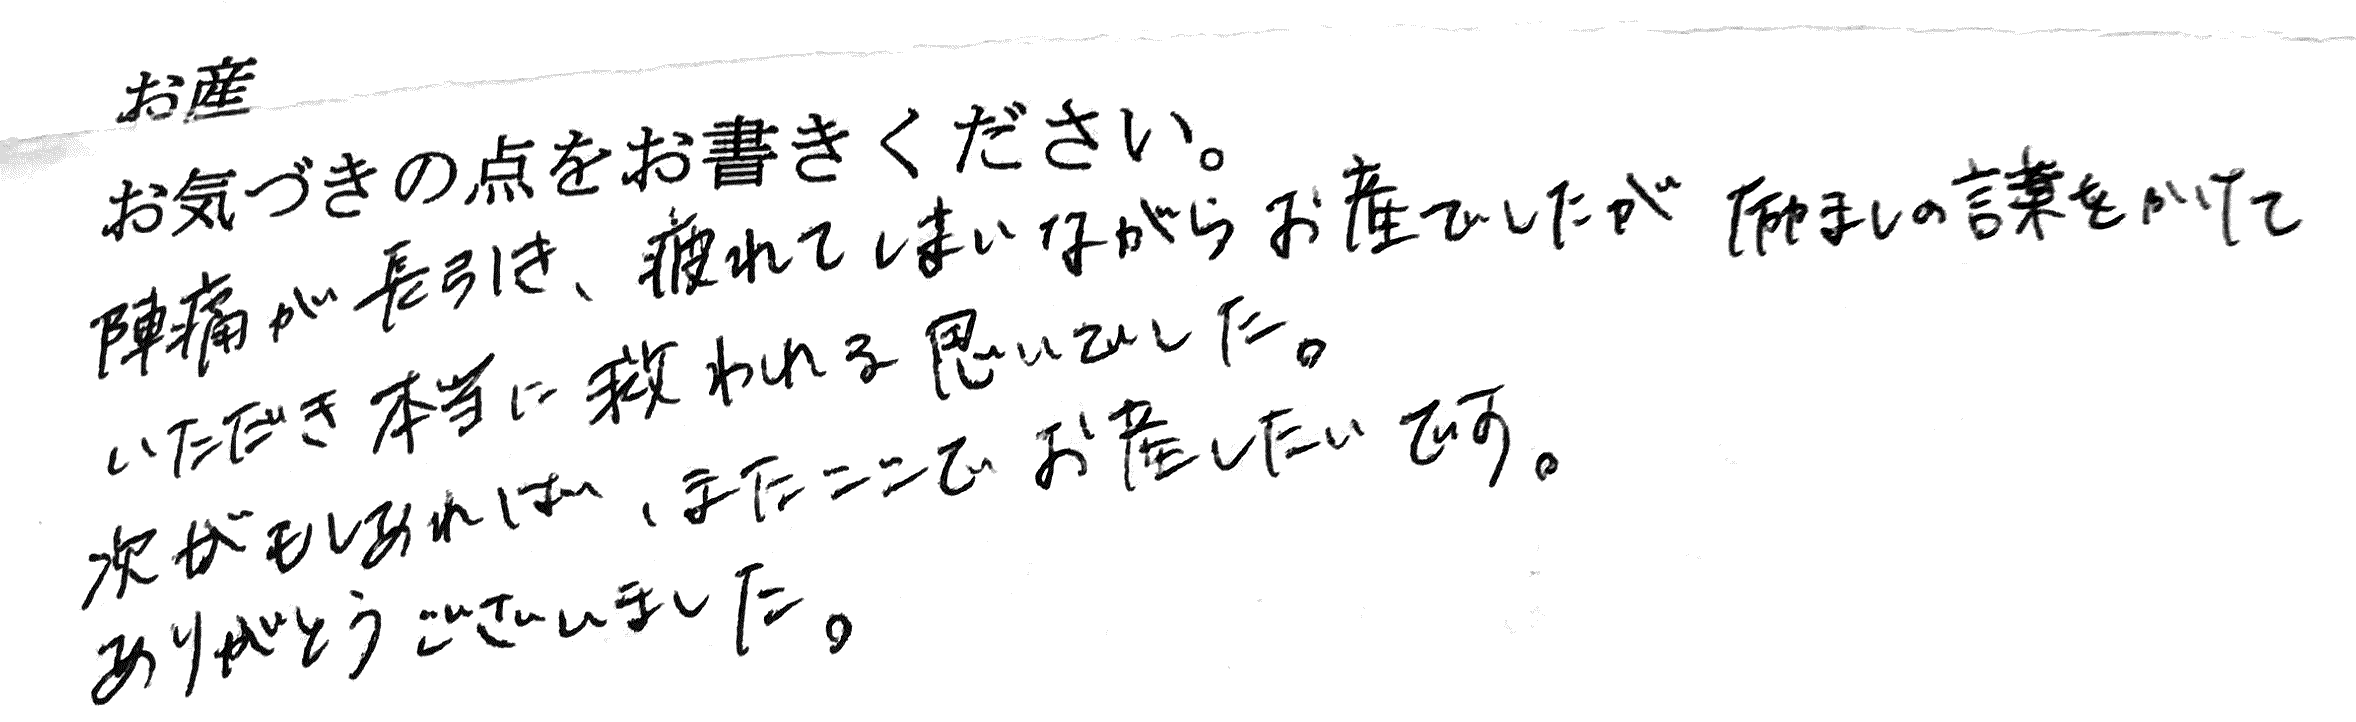 お産
お気づきの点をお書きください。
陣痛が長引き、疲れてしまいながらお産でしたが 励ましの言葉をかけて
いただき本当に救われる思いでした。
次がもしあれば、またここでお産したいです。
ありがとうございました。